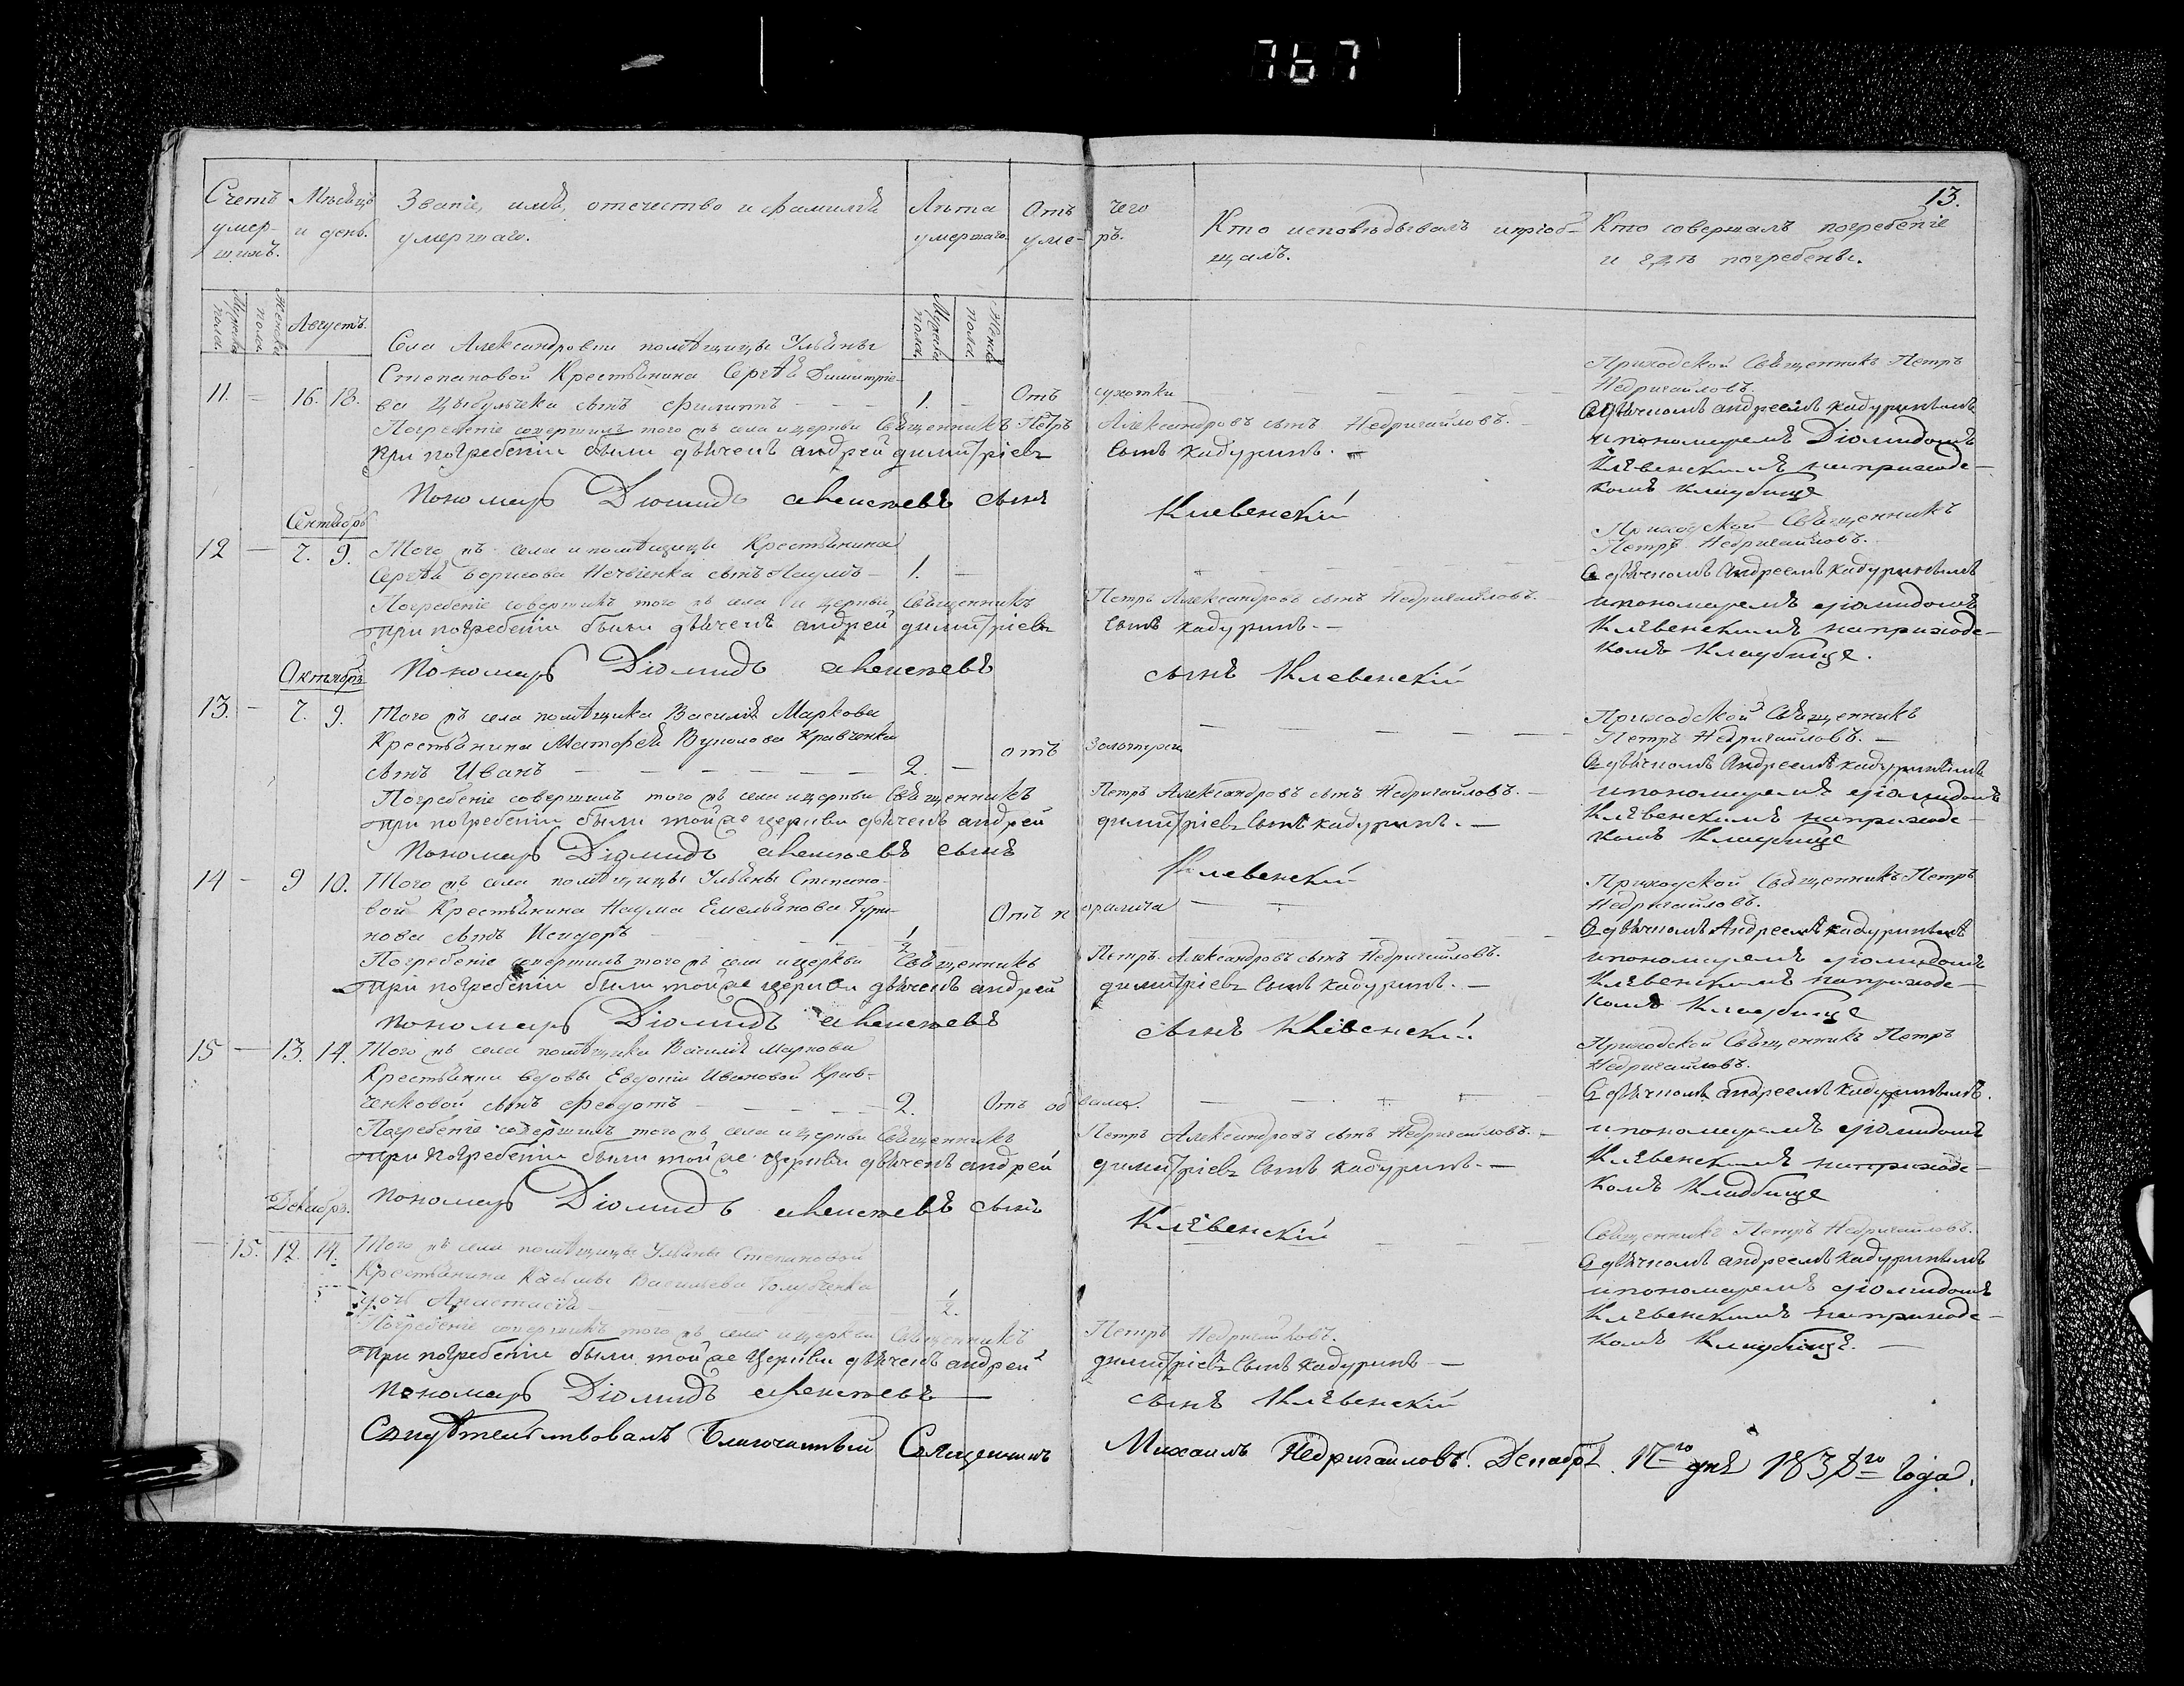 767
13.
Счетъ умер-шихъ.
Мѣсяцъ и день.
Званіе, имя, отчество и фамилія умершаго.
Лѣта умершаго.
Отъ чего умеръ.
Кто исповѣдывалъ и пріоб-щалъ.
Кто совершалъ погребеніе и гдѣ погребены.
Мужеска пола.
Женска пола.
Августъ.
Мужеска пола.
Женска пола.
Села Александровки помѣщицы Ульяны
Степановой Крестьянина Сергѣя Димитріе-
11. — 16. 18. ва Цыбульчека сынъ Филиппъ — 1. — Отъ сухотки
Погребеніе совершилъ того жъ села и церкви Священникъ Петръ Александровъ сынъ Недригайловъ.
При погребеніи были дьячекъ андрей димитріевъ сынъ кадуринъ.
Пономарь Діомидъ сынъ Клевенскій
Приходской Священникъ Петръ
Недригайловъ.
Съ дьячкомъ андреемъ кадуринымъ
и пономаремъ Діомидомъ
Клѣвенскимъ на приходс-
комъ кладбище
Сентябрь
12 — 7. 9. Того жъ села и помѣщицы Крестьянина
Сергѣя Борисова сынъ Наумъ — 1. —
Погребеніе совершилъ того жъ села и церкви Священникъ Петръ Александровъ сынъ Недригайловъ.
При погребеніи были дьячекъ андрей димитріевъ сынъ кадуринъ. —
Пономарь Діомидъ сынъ Клевенскій
Приходской Священникъ
Петръ Недригайловъ.
Съ дьячкомъ Андреемъ кадуринымъ
и пономаремъ діомидомъ
Клѣвенскимъ на приходс-
комъ Кладбище.
Октябрь
13. — 7. 9. Того жъ села помѣщика Василія Маркова
Крестьянина Матофея Кравченка
сынъ Иванъ — 2. — отъ Золотухи
Погребеніе совершилъ того жъ села и церкви Священникъ Петръ Александровъ сынъ Недригайловъ. —
При погребеніи были той же церкви дьячекъ андрей димитріевъ сынъ кадуринъ. —
Пономарь Діомидъ сынъ Клевенскій
Приходской Священникъ
Петръ Недригайловъ. —
Съ дьячкомъ Андреемъ кадуринымъ
и пономаремъ діомидомъ
Клѣвенскимъ на приходс-
комъ Кладбище
14 — 9 10. Того жъ села помѣщицы Ульяны Степано-
вой Крестьянина Наума Емельянова
сынъ Исидоръ — 1/2 Отъ
Погребеніе совершилъ того жъ села и церкви Священникъ Петръ Александровъ сынъ Недригайловъ.
При погребеніи были той же церкви дьячекъ андрей димитріевъ сынъ кадуринъ. —
пономарь Діомидъ сынъ Клевенскій
Приходской Священникъ Петръ
Недригайловъ.
Съ дьячкомъ Андреемъ кадуринымъ
и пономаремъ діомидомъ
Клѣвенскимъ на приходс-
комъ Кладбище
15 — 13. 14. Того жъ села помѣщика Василія Маркова
Крестьянки вдовы Евдокіи Ивановой Крав-
ченковой сынъ Феодотъ — 2. Отъ
Погребеніе совершилъ того жъ села и церкви Священникъ Петръ Александровъ сынъ Недригайловъ. —
При погребеніи были той же церкви дьячекъ андрей димитріевъ сынъ кадуринъ. —
пономарь Діомидъ сынъ Клѣвенскій
Приходской Священникъ Петръ
Недригайловъ.
Съ дьячкомъ андреемъ кадуринымъ.
и пономаремъ діомидомъ
Клѣвенскимъ на приходс-
комъ Кладбище
Декабрь.
— 15. 12. 14. Того жъ села помѣщицы Ульяны Степановой
Крестьянина Касьяна Васильева Голубченка
дочь Анастасія — 1/2.
Погребеніе совершилъ того жъ села и церкви Священникъ Петръ Недригайловъ.
При погребеніи были той же церкви дьячекъ андрей димитріевъ сынъ кадуринъ —
пономарь Діомидъ сынъ Клѣвенскій
Священникъ Петръ Недригайловъ.
Съ дьячкомъ андреемъ кадуринымъ
и пономаремъ діомидомъ
Клѣвенскимъ на приходс-
комъ Кладбище. —
Свидѣтельствовалъ Благочинный Священникъ Михаилъ Недригайловъ. Декабря дня года.